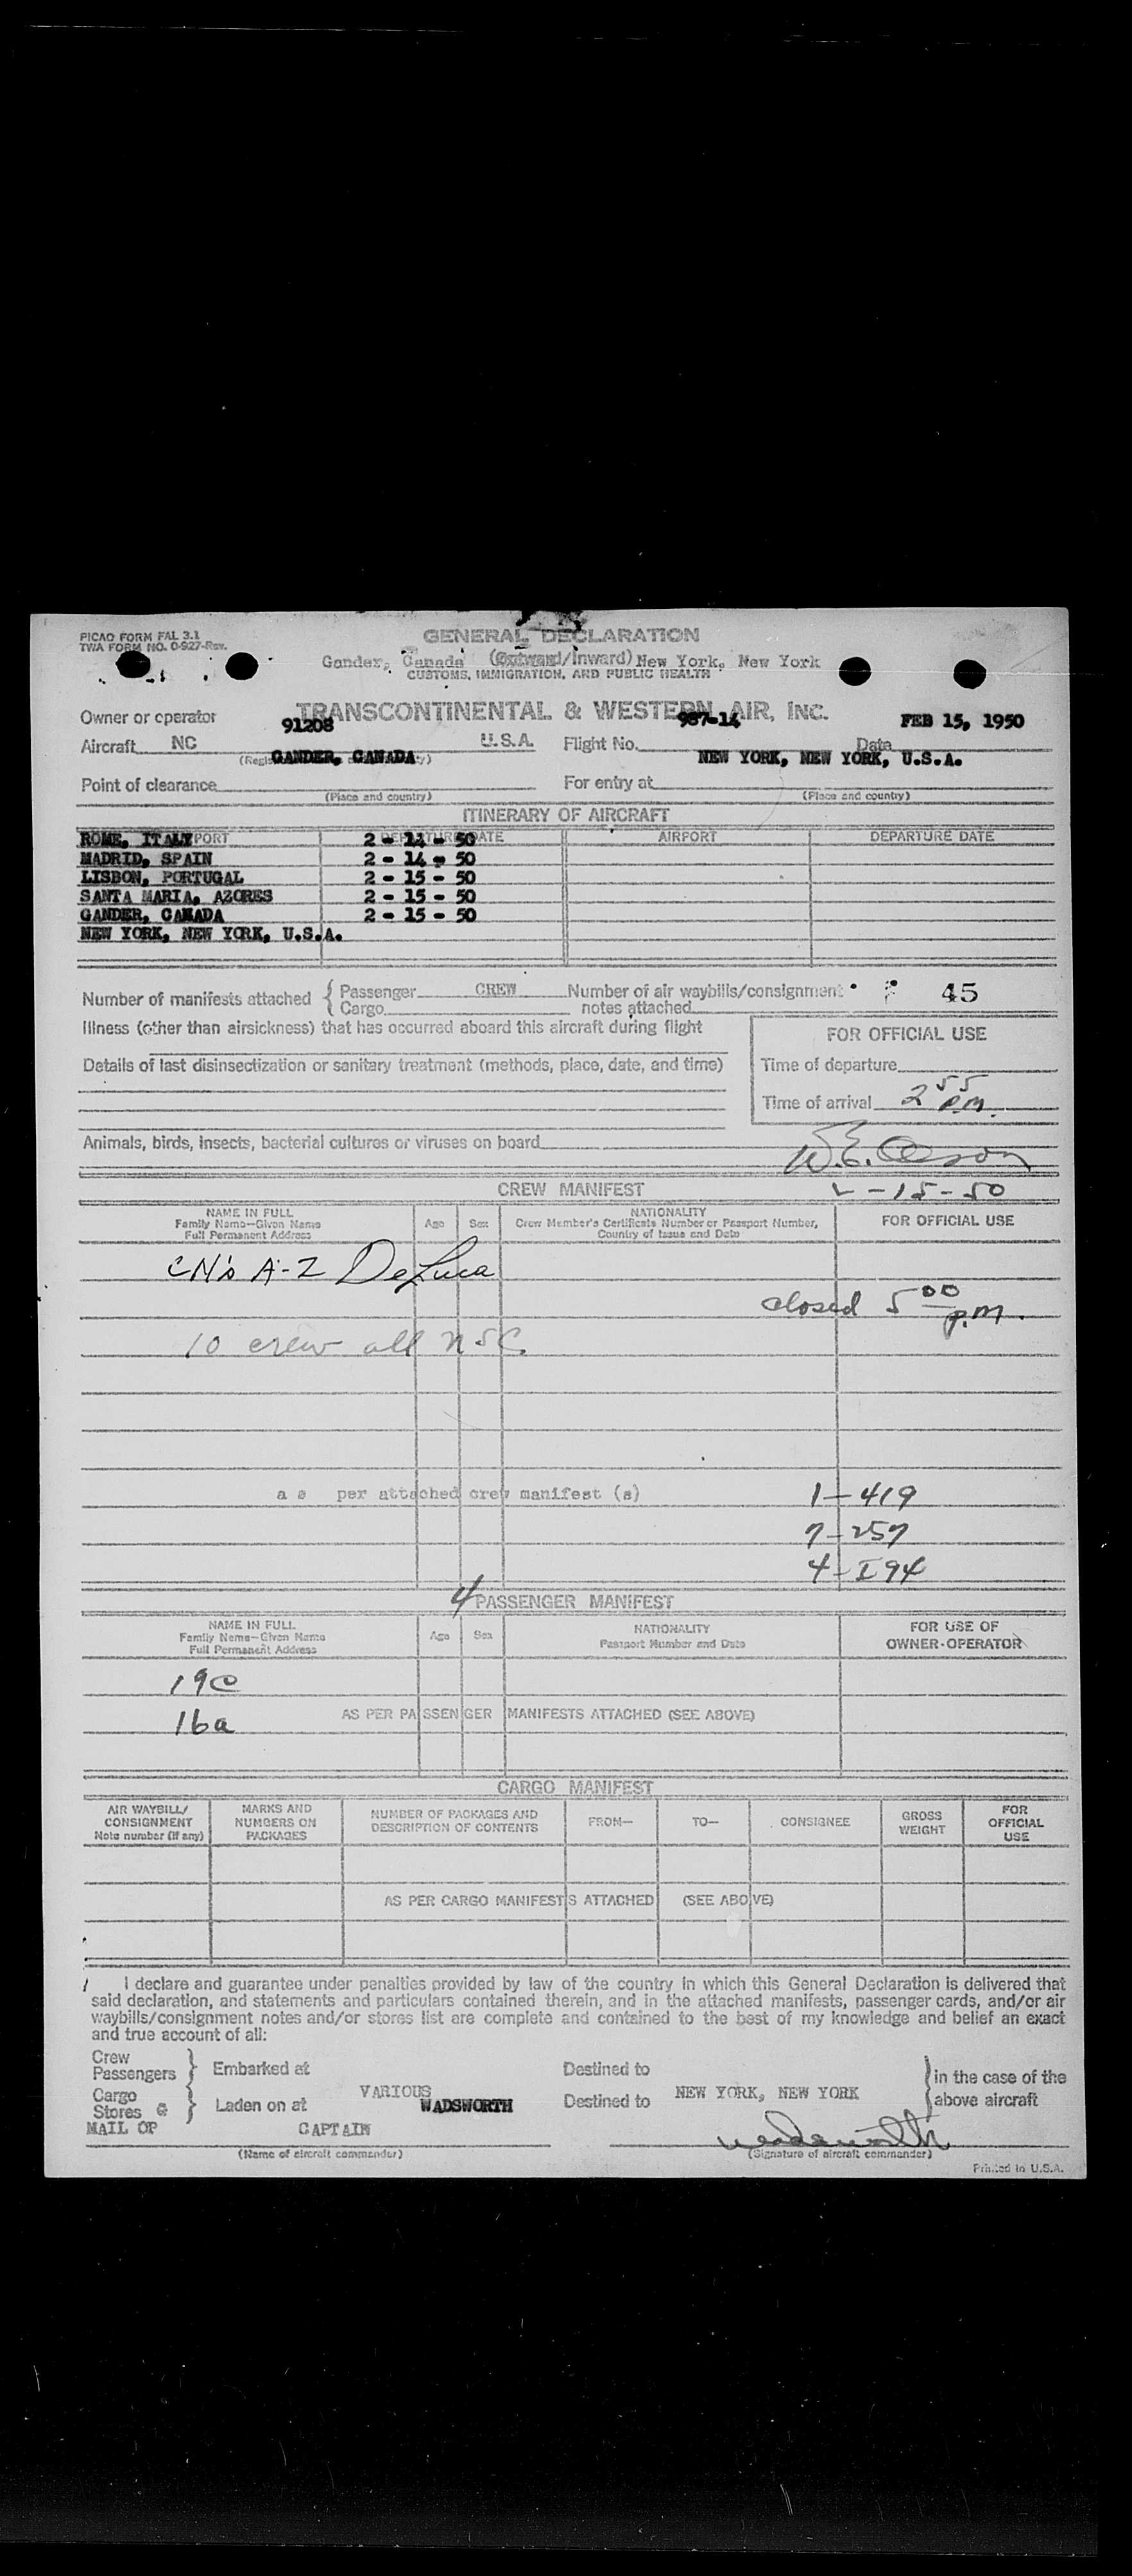 PICAO FORM FAL 3.1
TWA FORM NO. 0-927-Rev.
GENERAL DECLARATION
Gander, Canada (Outward/Inward) New York, New York
CUSTOMS, IMMIGRATION, AND PUBLIC HEALTH
Owner or operator TRANSCONTINENTAL & WESTERN AIR, INC.
91208 987-14 FEB 15, 1950
Aircraft NC U.S.A. Flight No. Date
GANDER, CANADA NEW YORK, NEW YORK, U.S.A.
Point of clearance For entry at
(Place and country) (Place and country)
ITINERARY OF AIRCRAFT
AIRPORT DEPARTURE DATE AIRPORT DEPARTURE DATE
ROME, ITALY 2 - 14 - 50
MADRID, SPAIN 2 - 14 - 50
LISBON, PORTUGAL 2 - 15 - 50
SANTA MARIA, AZORES 2 - 15 - 50
GANDER, CANADA 2 - 15 - 50
NEW YORK, NEW YORK, U.S.A.
Number of manifests attached { Passenger CREW Number of air waybills/consignment 45
Cargo notes attached
Illness (other than airsickness) that has occurred aboard this aircraft during flight
FOR OFFICIAL USE
Details of last disinsectization or sanitary treatment (methods, place, date, and time)
Time of departure
Time of arrival 2 55 P.M.
Animals, birds, insects, bacterial cultures or viruses on board
W.E.
CREW MANIFEST 2-15-50
NAME IN FULL
Family Name—Given Name
Full Permanent Address
Age Sex
NATIONALITY
Crew Member's Certificate Number or Passport Number,
Country of Issue and Date
FOR OFFICIAL USE
A-Z DeLuca
closed 5 00 p.m.
10 crew all
a s per attached crew manifest (s)
1-419
7-257
4-I94
4 PASSENGER MANIFEST
NAME IN FULL
Family Name—Given Name
Full Permanent Address
Age Sex
NATIONALITY
Passport Number and Date
FOR USE OF
OWNER-OPERATOR
19c
16a AS PER PASSENGER MANIFESTS ATTACHED (SEE ABOVE)
CARGO MANIFEST
AIR WAYBILL/
CONSIGNMENT
Note number (if any)
MARKS AND
NUMBERS ON
PACKAGES
NUMBER OF PACKAGES AND
DESCRIPTION OF CONTENTS
FROM—
TO—
CONSIGNEE
GROSS
WEIGHT
FOR
OFFICIAL
USE
AS PER CARGO MANIFESTS ATTACHED (SEE ABOVE)
I declare and guarantee under penalties provided by law of the country in which this General Declaration is delivered that
said declaration, and statements and particulars contained therein, and in the attached manifests, passenger cards, and/or air
waybills/consignment notes and/or stores list are complete and contained to the best of my knowledge and belief an exact
and true account of all:
Crew
Passengers } Embarked at Destined to
Cargo
Stores & } Laden on at VARIOUS Destined to NEW YORK, NEW YORK
in the case of the
above aircraft
WADSWORTH
MAIL OP CAPTAIN Wadsworth
(Name of aircraft commander) (Signature of aircraft commander)
Printed in U.S.A.